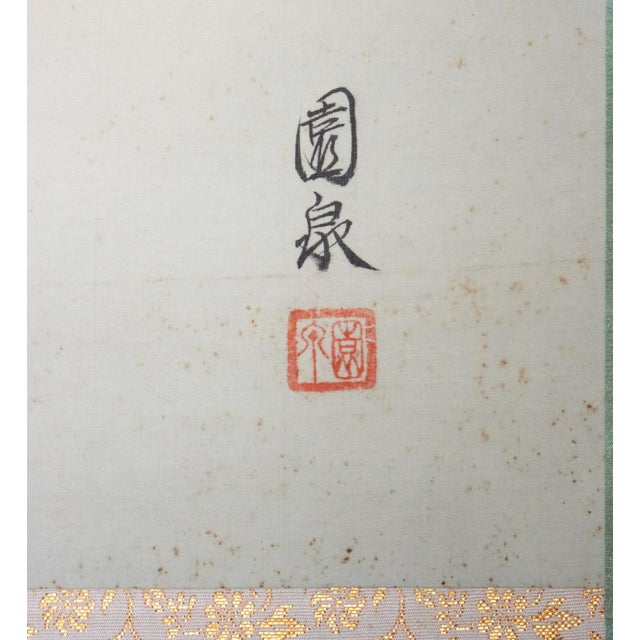 園泉
園泉